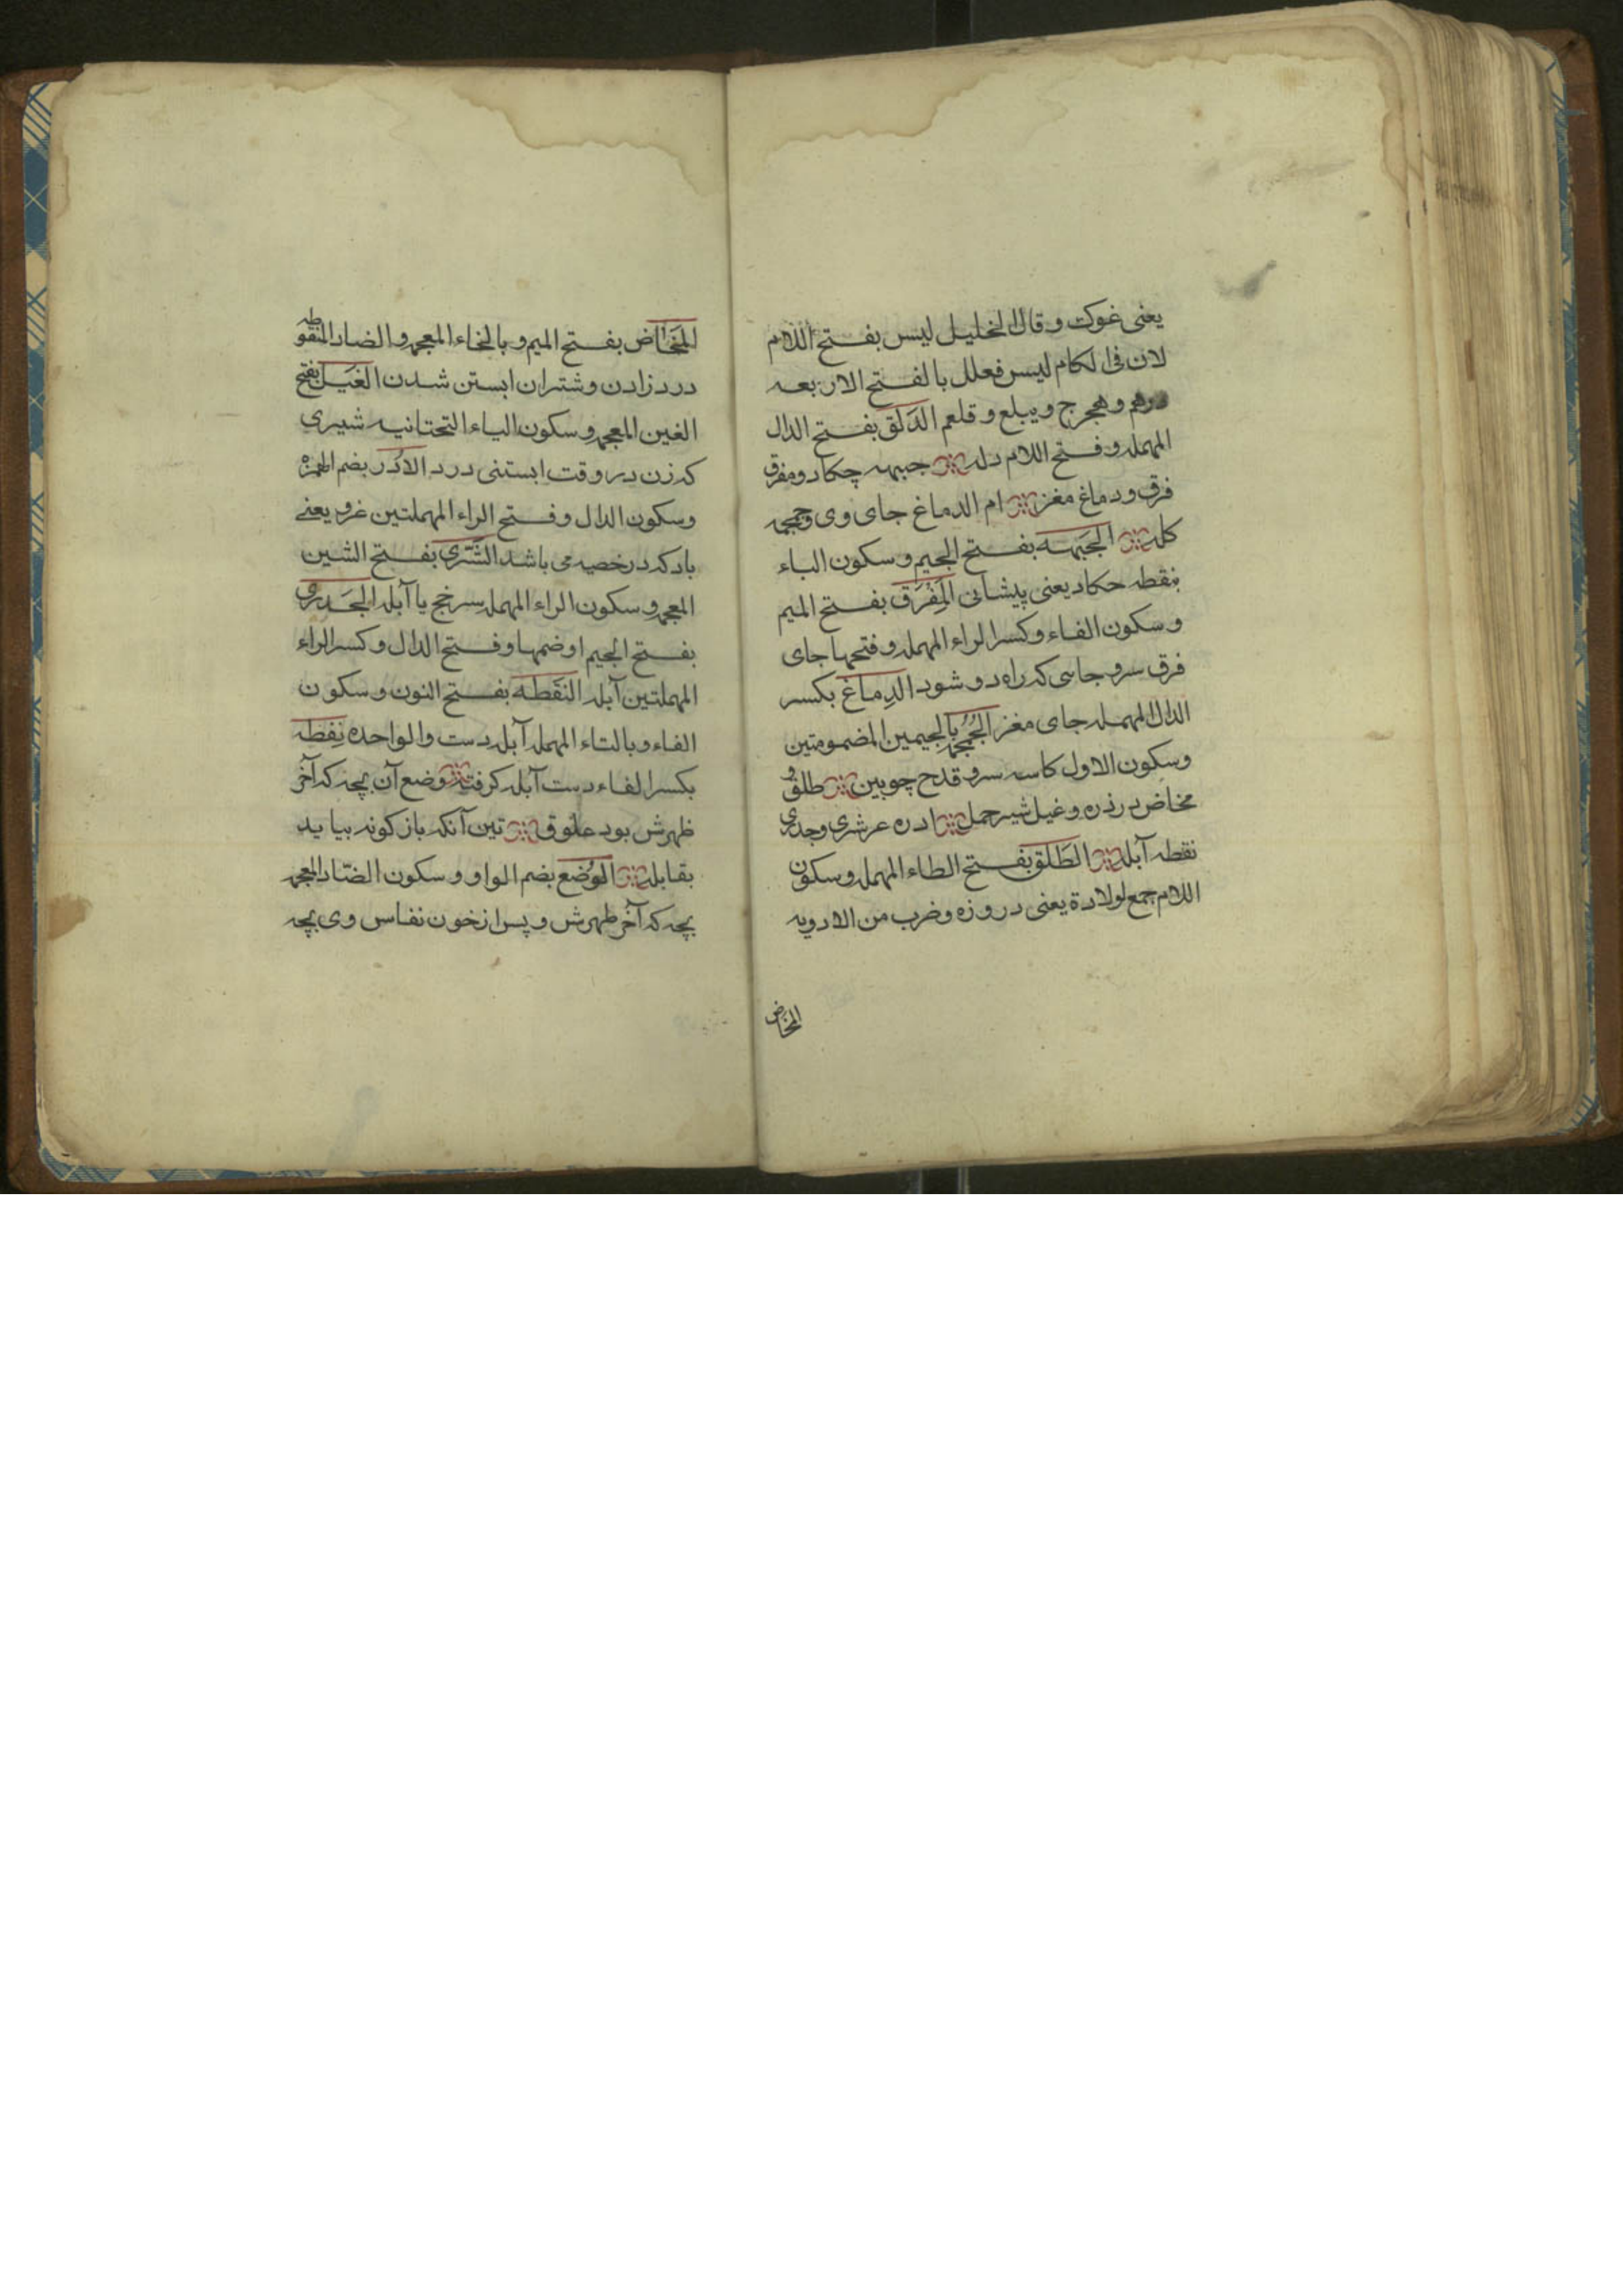 یعنی غوک و قال الخلیل لیس بفتح اللام
لان فی الکلام لیس فعلل بالفتح الا ربعه
درهم و هجرج و یبلع و قلعم الدَلَق بفتح الدال
المهمله و فتح اللام دله جبهه چکاد و مفرق
فرق و دماغ مغز ام الدماغ جای وی و جمجمه
کله الجَبهه بفتح الجیم و سکون الباء
بنقطه حکاد یعنی پیشانی المِفْرَق بفتح المیم
و سکون الفاء و کسر الراء المهمله و فتحها جای
فرق سر و جایی که راه دو شود الدِماغ بکسر
الدال المهمله جای مغز الجُمجُمه بالجیمین المضمومتین
و سکون الاول کاسه سر و قدح چوبین طلق و
مخاض درزه و غیل شیر حمل ادره غر شری و جدری
نقطه آبله الطَلق بفتح الطاء المهمله و سکون
اللام جمع لولادة یعنی دروزه و ضرب من الادویه
المخاض
المَخاض بفتح المیم و بالخاء المعجمه و الضاد المنقوطه
درد زادن و شتران ابستن شدن الغَیل بفتح
الغین المعجمه و سکون الیاء التحتانیه شیری
که زن در وقت ابستنی درد الاُدَر بضم الهمزه
و سکون الدال و فتح الراء المهملتین غر و یعنے
باد که در خصیه می باشد الشَری بفتح الشین
المعجمه و سکون الراء المهمله سرخج یا آبله الجَدری
بفتح الجیم او ضمها و فتح الدال و کسر الراء
المهملتین آبله النَفطه بفتح النون و سکون
الفاء و بالتاء المهمله آبله دست و الواحده نِفطه
بکسر الفاء دست آبله کرفته وضع آن بچه که آخر
طهرش بود علوق تین آنکه باز کونه بیاید
بقابله الوُضع بضم الواو و سکون الضاد المعجمه
بچه که آخر طهرش و پس از خون نفاس وی بچه